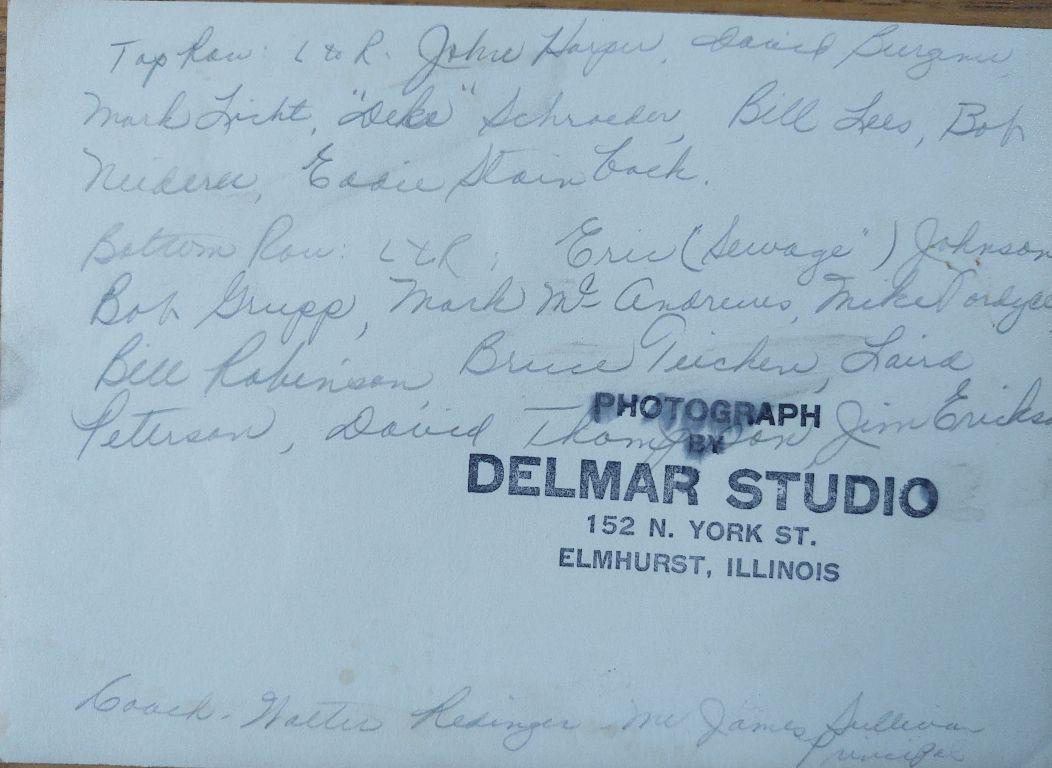 Top Row: L to R. John Harper, David Burgener,
Mark Licht, "Deke" Schroeder, Bill Lees, Bob
Neiderer, Eddie Stainback.
Bottom Row: L & R: Eric ("Sewage") Johnson
Bob Grupp, Mark McAndrews, Mike Fordyce
Bill Robinson, Bruce Teichen, Laird
Peterson, David Thompson, Jim Erickso
PHOTOGRAPH
BY
DELMAR STUDIO
152 N. YORK ST.
ELMHURST, ILLINOIS
Coach - Walter Redinger Mr James Sullivan
Principal